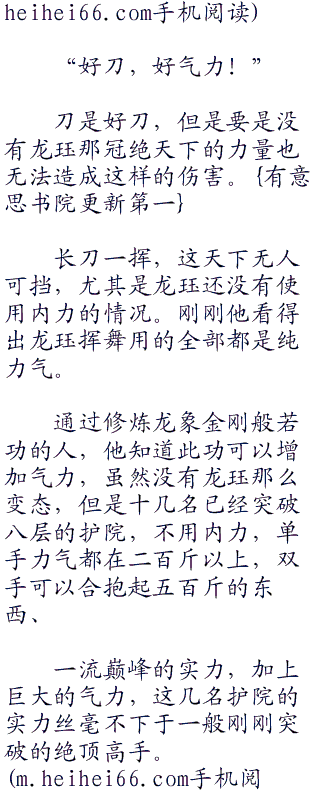 heihei66.com手机阅读)
“好刀，好气力！”
刀是好刀，但是要是没
有龙珏那冠绝天下的力量也
无法造成这样的伤害。{有意
思书院更新第一}
长刀一挥，这天下无人
可挡，尤其是龙珏还没有使
用内力的情况。刚刚他看得
出龙珏挥舞用的全部都是纯
力气。
通过修炼龙象金刚般若
功的人，他知道此功可以增
加气力，虽然没有龙珏那么
变态，但是十几名已经突破
八层的护院，不用内力，单
手力气都在二百斤以上，双
手可以合抱起五百斤的东
西、
一流巅峰的实力，加上
巨大的气力，这几名护院的
实力丝毫不下于一般刚刚突
破的绝顶高手。
(m.heihei66.com手机阅